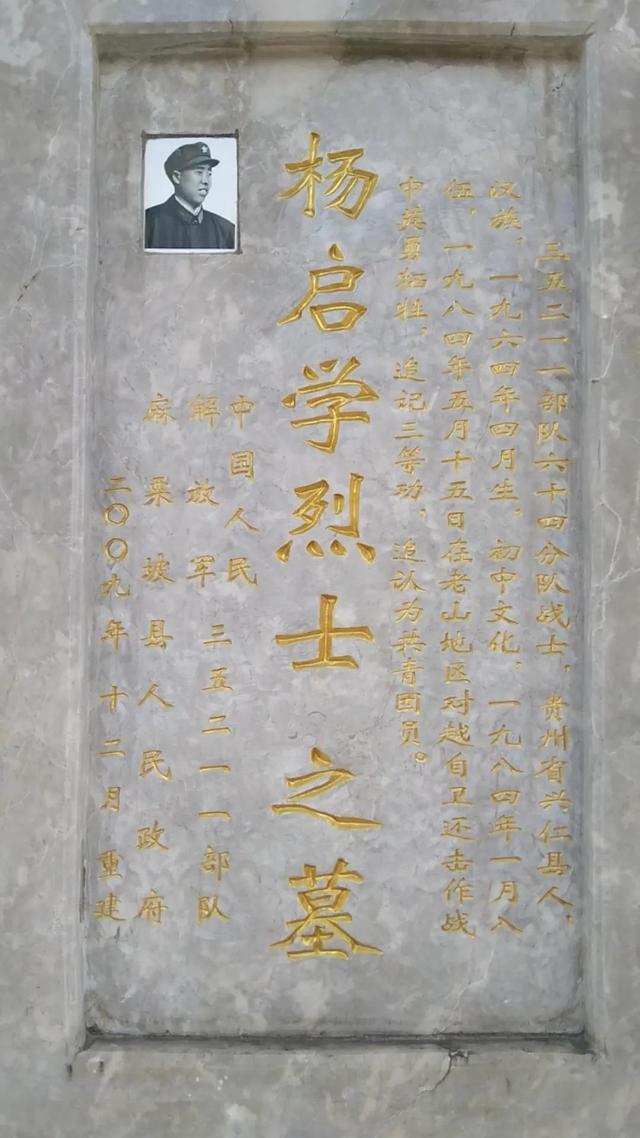 三五二一一部队六十四分队战士，贵州省兴仁县人，
汉族，一九六四年四月生，初中文化，一九八四年一月入
伍，一九八四年五月十五日在老山地区对越自卫还击作战
中英勇牺牲，追记三等功，追认为共青团员。
杨启学烈士之墓
中国人民
解放军三五二一一部队
麻栗坡县人民政府
二〇〇九年十二月重建